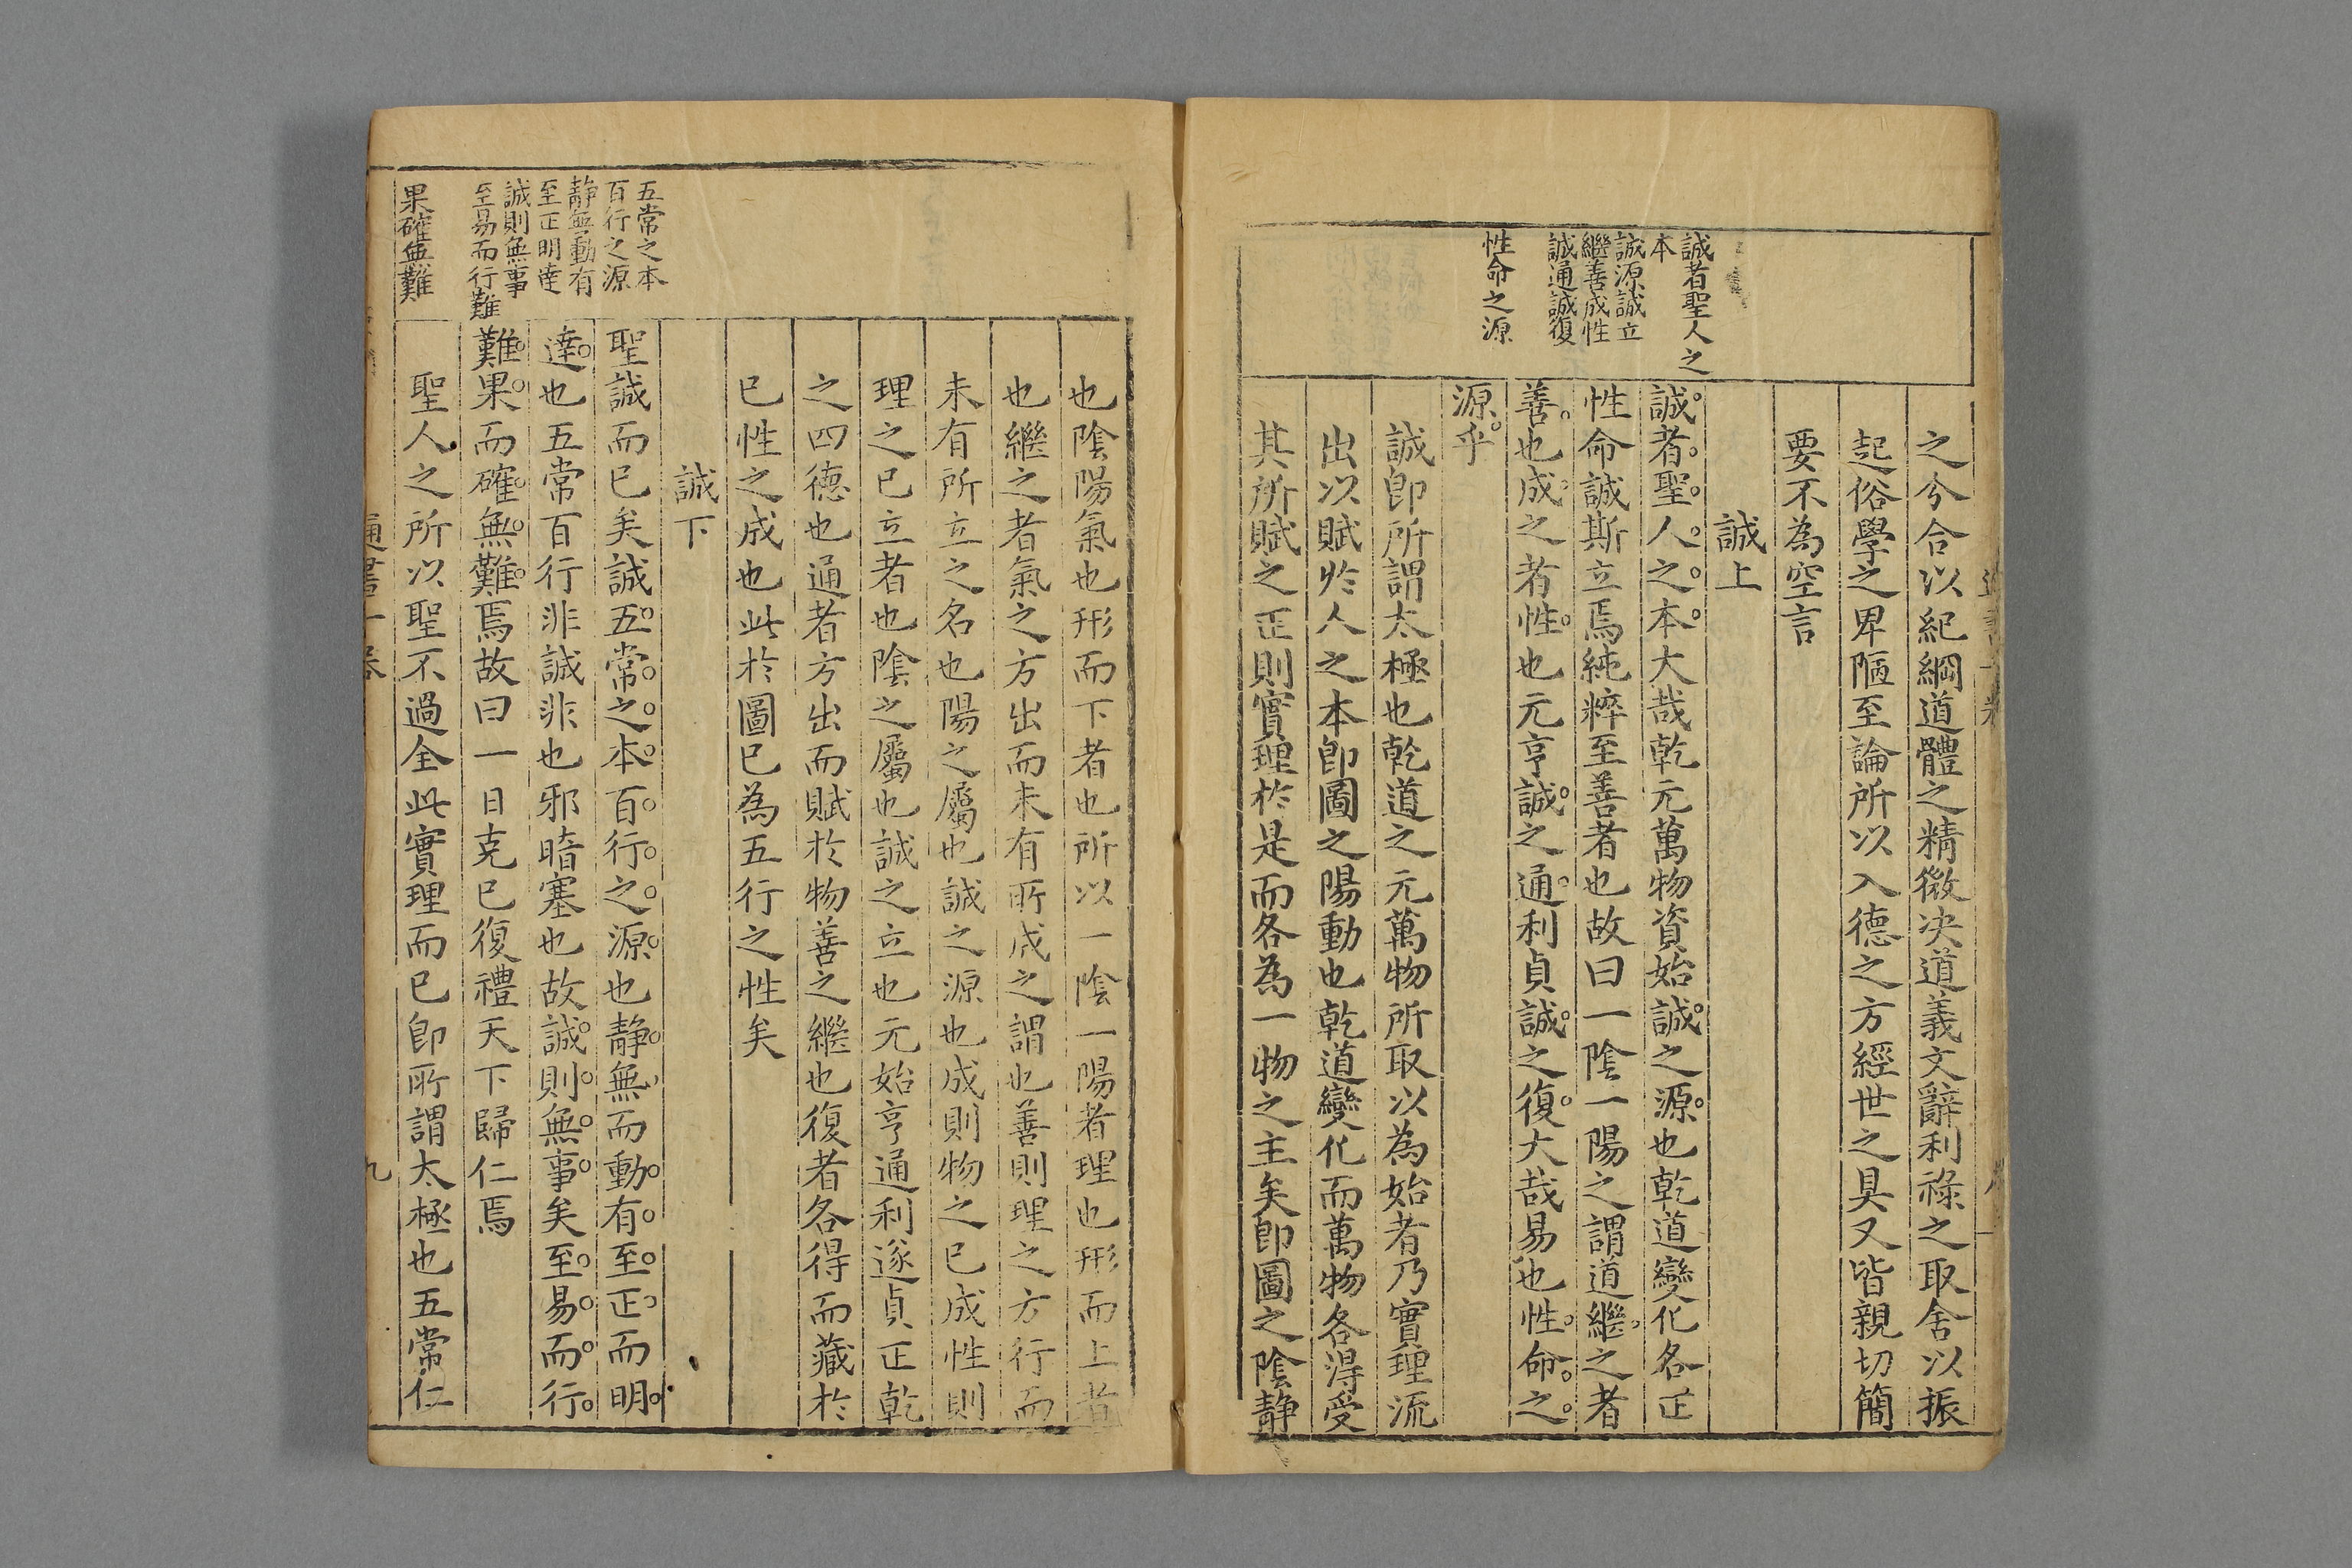 誠者聖人之
本
誠源誠立
繼善成性
誠通誠復
性命之源
之分合以紀綱道體之精微决道義文辭利祿之取舍以振
起俗學之卑陋至論所以入德之方經世之具又皆親切簡
要不為空言
誠上
誠者聖人之本大哉乾元萬物資始誠之源也乾道變化各正
性命誠斯立焉純粹至善者也故曰一陰一陽之謂道繼之者
善也成之者性也元亨誠之通利貞誠之復大哉易也性命之
源乎
誠卽所謂太極也乾道之元萬物所取以為始者乃實理流
出以賦於人之本卽圖之陽動也乾道變化而萬物各得受
其所賦之正則實理於是而各為一物之主矣卽圖之陰靜
五常之本
百行之源
靜無動有
至正明達
誠則無事
至易而行難
果確無難
也陰陽氣也形而下者也所以一陰一陽者理也形而上者
也繼之者氣之方出而未有所成之謂也善則理之方行而
未有所立之名也陽之屬也誠之源也成則物之已成性則
理之已立者也陰之屬也誠之立也元始亨通利遂貞正乾
之四德也通者方出而賦於物善之繼也復者各得而藏於
已性之成也此於圖已為五行之性矣
誠下
聖誠而已矣誠五常之本百行之源也靜無而動有至正而明
達也五常百行非誠非也邪暗塞也故誠則無事矣至易而行
難果而確無難焉故曰一日克已復禮天下歸仁焉
聖人之所以聖不過全此實理而已卽所謂太極也五常仁
通書一卷
九